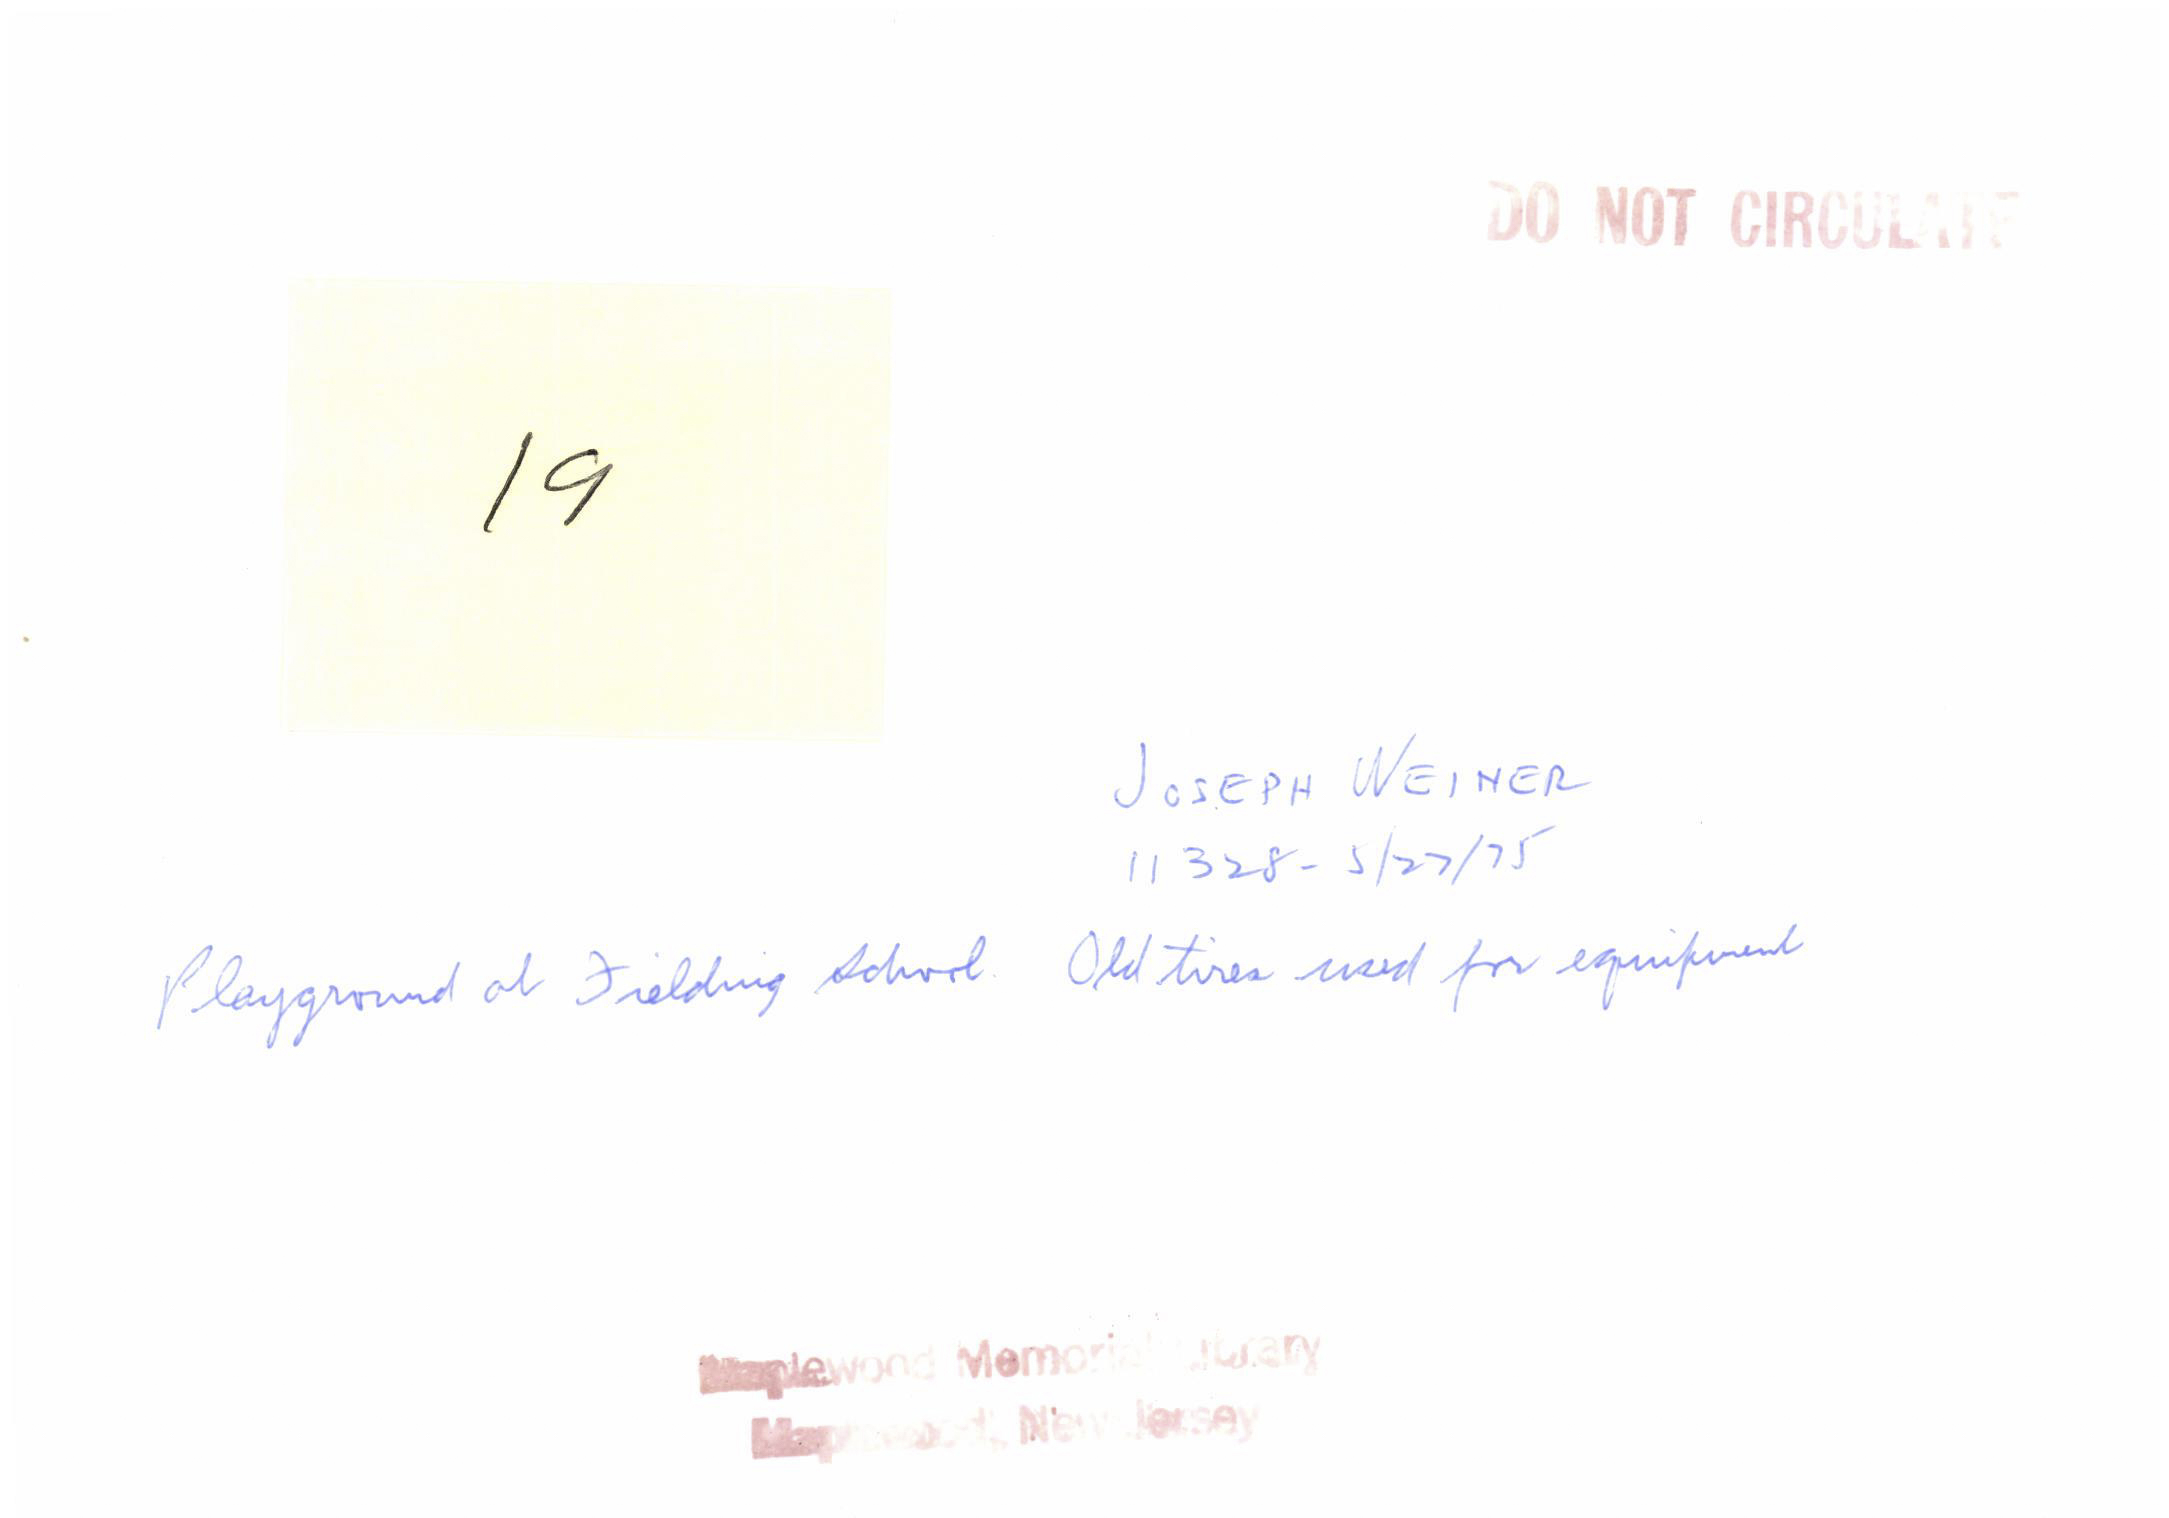 DO NOT CIRCULATE
19
JOSEPH WEINER
11328-5/27/75
Playground at Fielding School. Old tires used for equipment
Maplewood Memorial Library
Maplewood, New Jersey